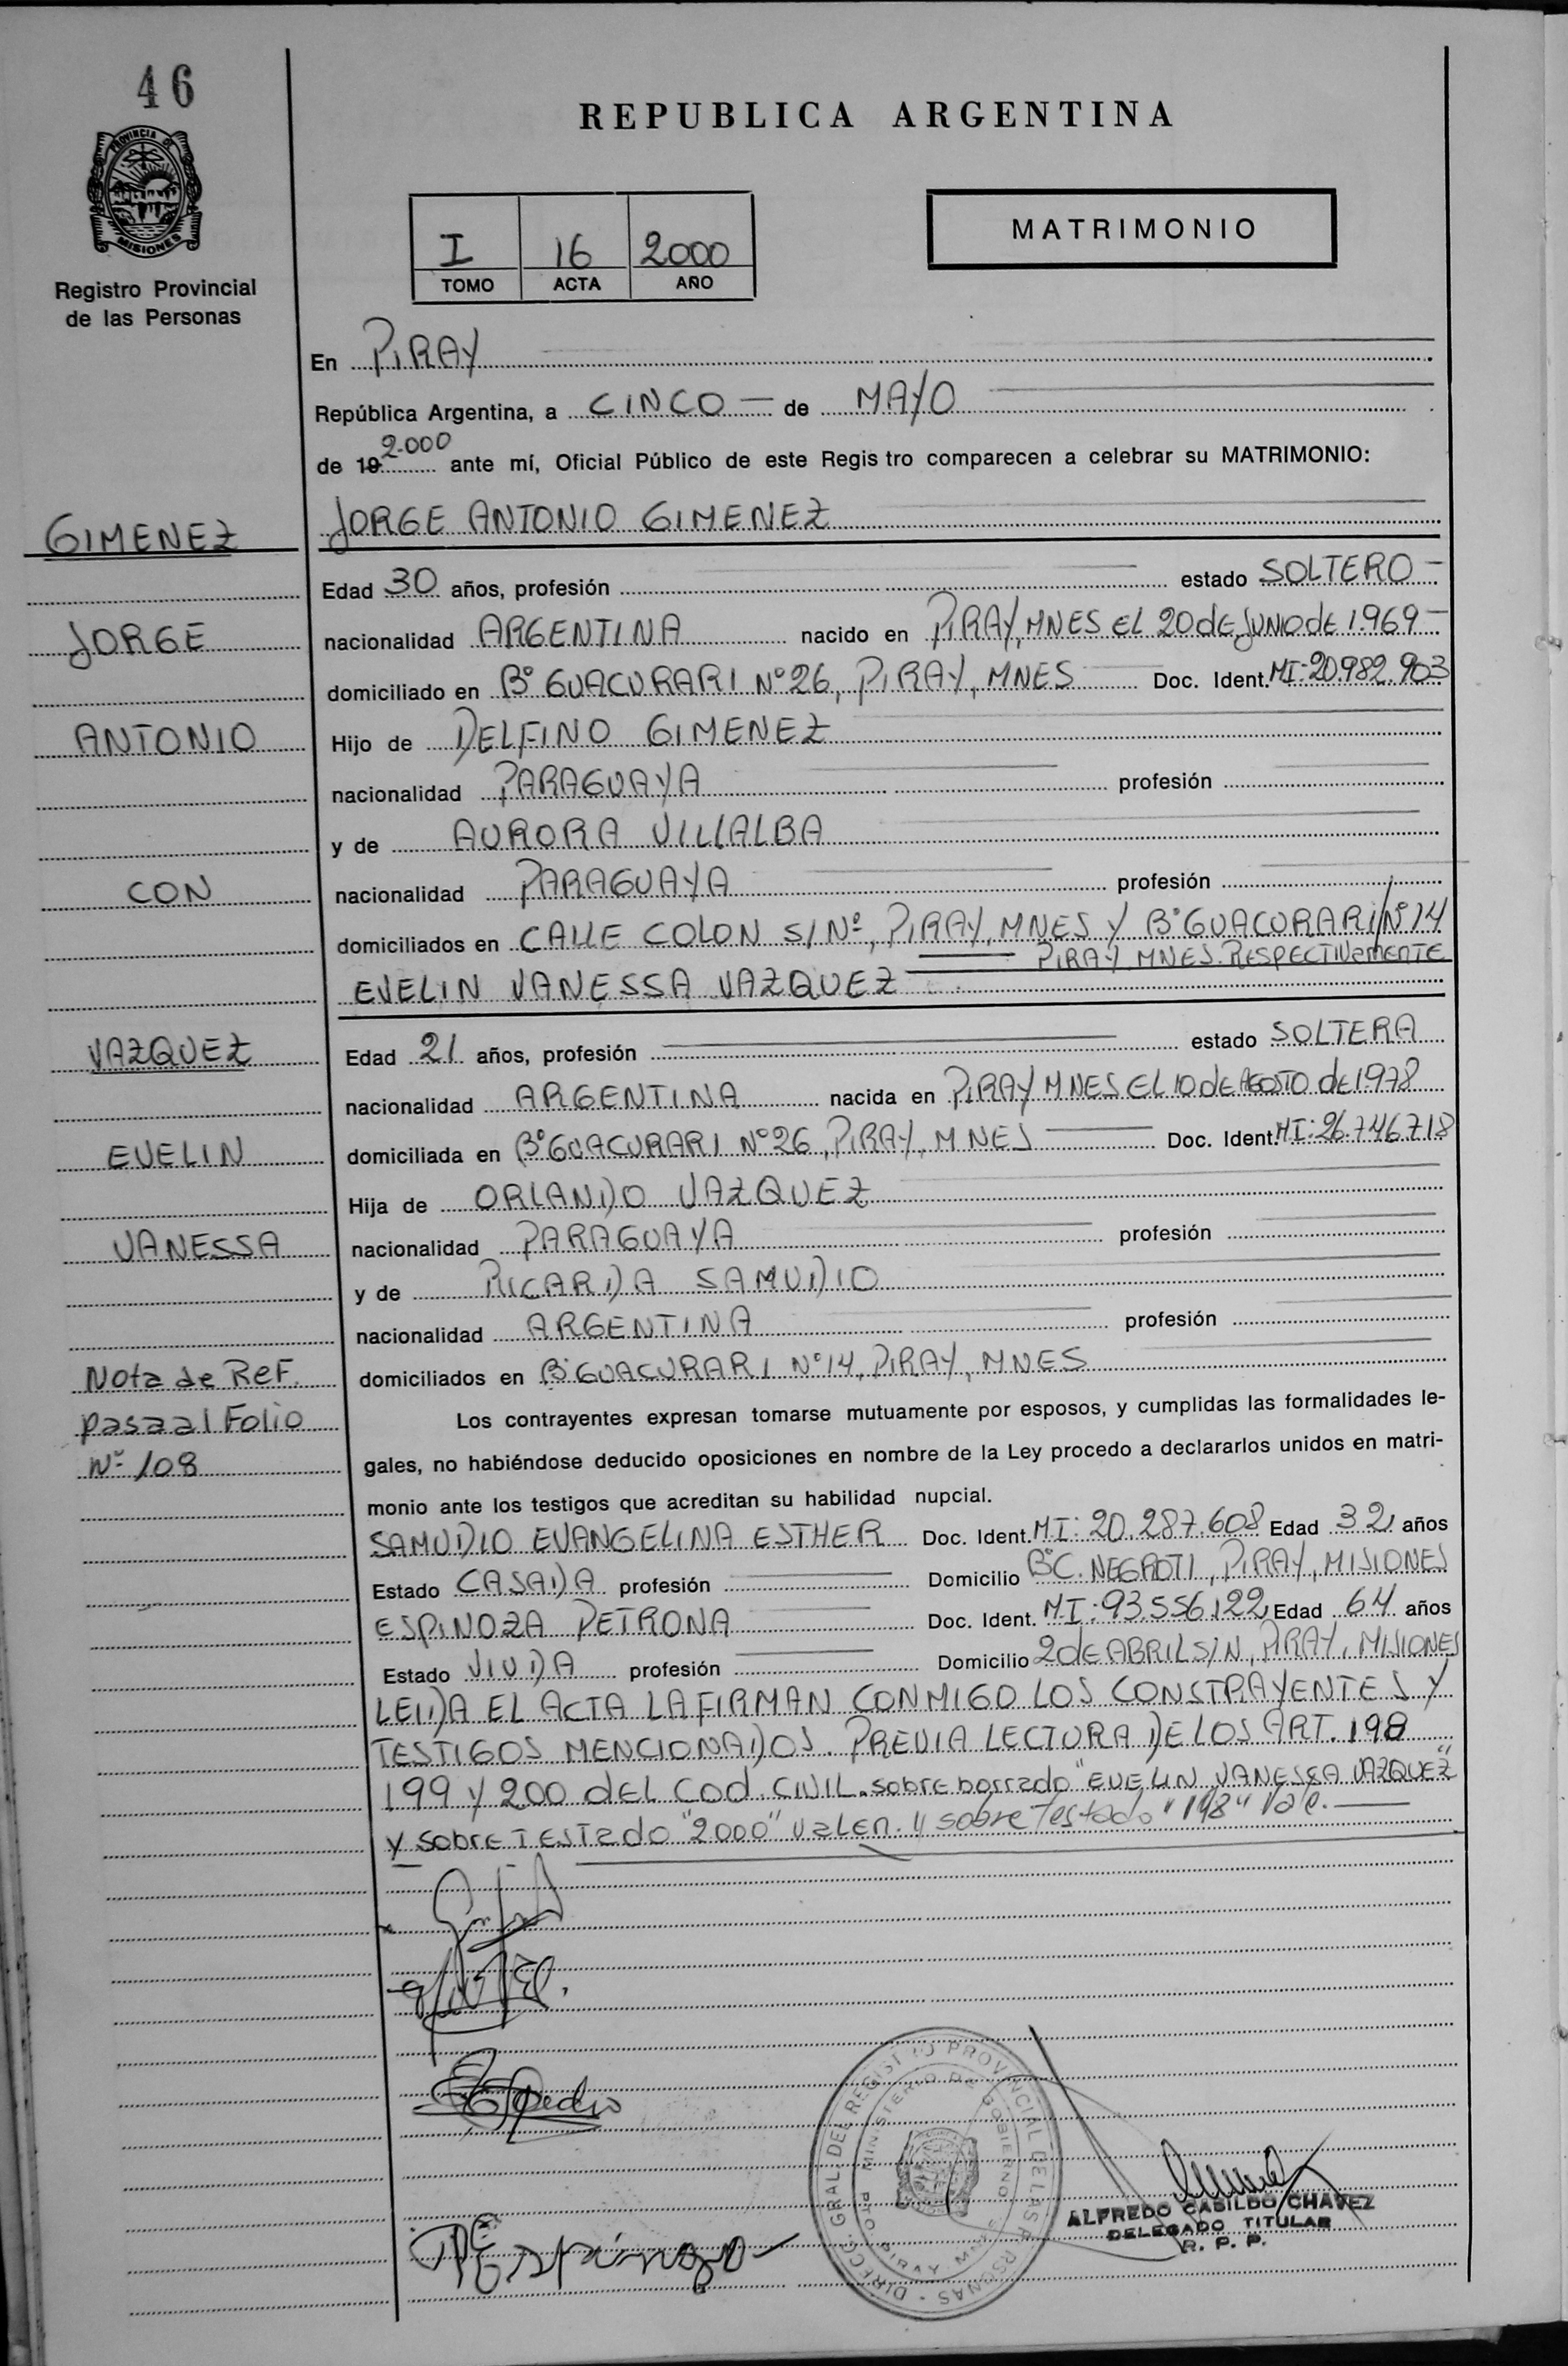 46
PROVINCIA DE
MISIONES
Registro Provincial
de las Personas
REPUBLICA ARGENTINA
I 16 2000
TOMO ACTA AÑO
MATRIMONIO
En PIRAY
República Argentina, a CINCO de MAYO
de 19 2.000 ante mí, Oficial Público de este Regis tro comparecen a celebrar su MATRIMONIO:
GIMENEZ
JORGE
ANTONIO
CON
VAZQUEZ
EVELIN
VANESSA
Nota de Ref.
pasa al Folio
Nº 108
JORGE ANTONIO GIMENEZ
Edad 30 años, profesión estado SOLTERO
nacionalidad ARGENTINA nacido en PIRAY, MNES EL 20 de JUNIO dE 1.969
domiciliado en Bº GUACURARI Nº 26, PIRAY, MNES Doc. Ident. MI: 20.982.903
Hijo de DELFINO GIMENEZ
nacionalidad PARAGUAYA profesión
y de AURORA VILLALBA
nacionalidad PARAGUAYA profesión
domiciliados en CALLE COLON S/Nº, PIRAY, MNES Y Bº GUACURARI Nº 14
PIRAY MNES. RESPECTIVAMENTE
EVELIN VANESSA VAZQUEZ
Edad 21 años, profesión estado SOLTERA
nacionalidad ARGENTINA nacida en PIRAY MNES EL 10 de AGOSTO dE 1.978
domiciliada en Bº GUACURARI Nº 26, PIRAY, MNES Doc. Ident. MI: 26.746.718
Hija de ORLANDO VAZQUEZ
nacionalidad PARAGUAYA profesión
y de RICARDA SAMUDIO
nacionalidad ARGENTINA profesión
domiciliados en Bº GUACURARI Nº 14, PIRAY, MNES
Los contrayentes expresan tomarse mutuamente por esposos, y cumplidas las formalidades le-
gales, no habiéndose deducido oposiciones en nombre de la Ley procedo a declararlos unidos en matri-
monio ante los testigos que acreditan su habilidad nupcial.
SAMUDIO EVANGELINA ESTHER Doc. Ident. MI: 20.287.608 Edad 32 años
Estado CASADA profesión Domicilio Bº C. NEGROTI, PIRAY, MISIONES
ESPINOZA PETRONA Doc. Ident. MI: 93.556.122 Edad 64 años
Estado VIUDA profesión Domicilio 2 de ABRIL S/N, PIRAY, MISIONES
LEIDA EL ACTA LA FIRMAN CONMIGO LOS CONSTRAYENTES Y
TESTIGOS MENCIONADOS. PREVIA LECTURA DE LOS ART. 198
199 Y 200 DEL COD. CIVIL. sobre borrado "EVELIN VANESSA VAZQUEZ"
Y sobre Testado "2000" valen. y sobre Testado "198" vale.
Espinoza
ALFREDO CASILDO CHAVEZ
DELEGADO TITULAR
R. P. P.